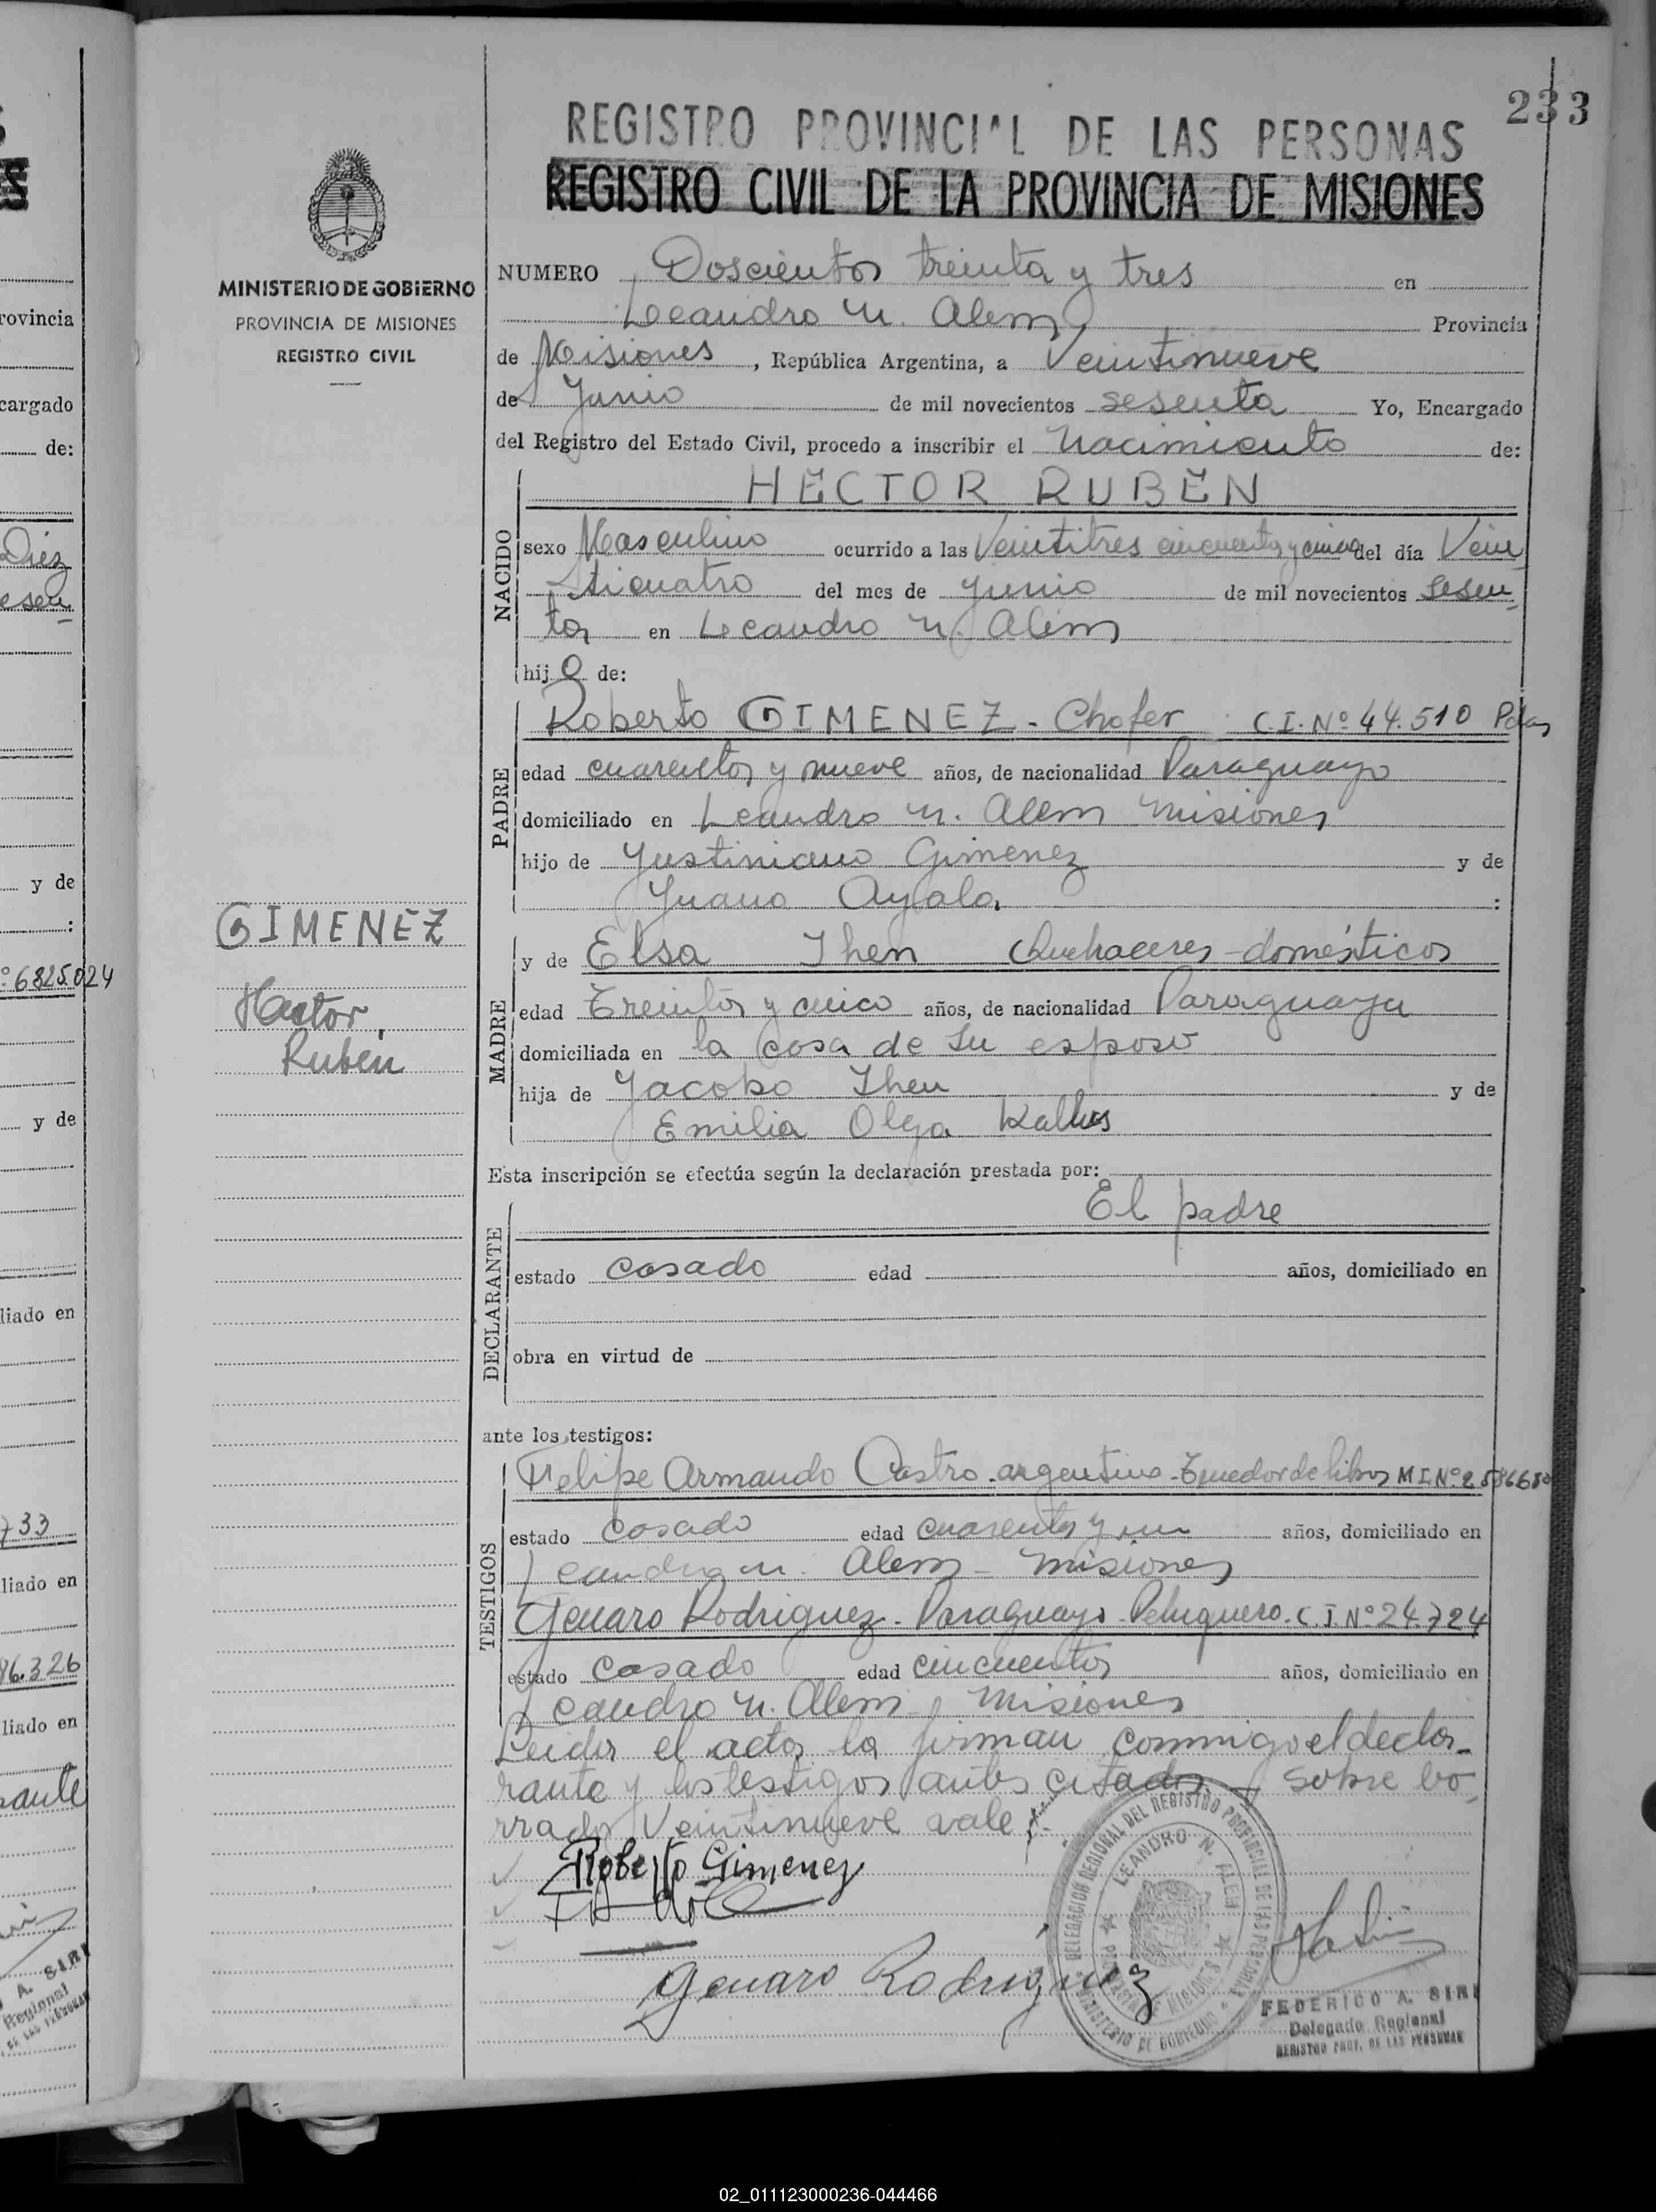 233
REGISTRO PROVINCIAL DE LAS PERSONAS
REGISTRO CIVIL DE LA PROVINCIA DE MISIONES
MINISTERIO DE GOBIERNO
PROVINCIA DE MISIONES
REGISTRO CIVIL
NUMERO Doscientos treinta y tres en
Leandro N. Alem Provincia
de Misiones, República Argentina, a Veintinueve
de Junio de mil novecientos sesenta Yo, Encargado
del Registro del Estado Civil, procedo a inscribir el Nacimiento de:
NACIDO
HECTOR RUBEN
sexo Masculino ocurrido a las Veintitres cincuenta y cinco del día Vein
ticuatro del mes de Junio de mil novecientos sesen
ta en Leandro N. Alem
hijo de:
PADRE
Roberto GIMENEZ - Chofer C.I. Nº 44.510 Pdas
edad cuarenta y nueve años, de nacionalidad Paraguayo
domiciliado en Leandro N. Alem Misiones
hijo de Justiniano Gimenez y de
Juana Ayala :
GIMENEZ
Hector
Rubén
MADRE
y de Elsa Then Quehaceres-domésticos
edad Treinta y cinco años, de nacionalidad Paraguaya
domiciliada en la casa de su esposo
hija de Jacobo Then y de
Emilia Olga Kallus
Esta inscripción se efectúa según la declaración prestada por:
DECLARANTE
El padre
estado casado edad años, domiciliado en
obra en virtud de
ante los testigos:
TESTIGOS
Felipe Armando Castro. argentino. Tenedor de libros M.I. Nº
estado casado edad cuarenta y un años, domiciliado en
Leandro N. Alem - Misiones
Genaro Rodriguez - Paraguayo - Peluquero. C.I. Nº 24.724
estado casado edad cincuenta años, domiciliado en
Leandro N. Alem, Misiones
Leida el acta la firman conmigo el decla-
rante y los testigos antes citados. Sobre bo
rrado Veintinueve vale
Roberto Gimenez
Genaro Rodriguez
DELEGACION REGIONAL DEL REGISTRO PROVINCIAL DE LAS PERSONAS
LEANDRO N. ALEM
PROVINCIA DE MISIONES
MINISTERIO DE GOBIERNO
FEDERICO A. SIRI
Delegado Regional
REGISTRO PROV. DE LAS PERSONAS
rovincia
cargado
de:
Diez
esen
y de
:
º 6825.024
y de
liado en
733
liado en
86.326
liado en
rante
A. SIRI
Regional
DE LAS PERSONAS
02_011123000236-044466